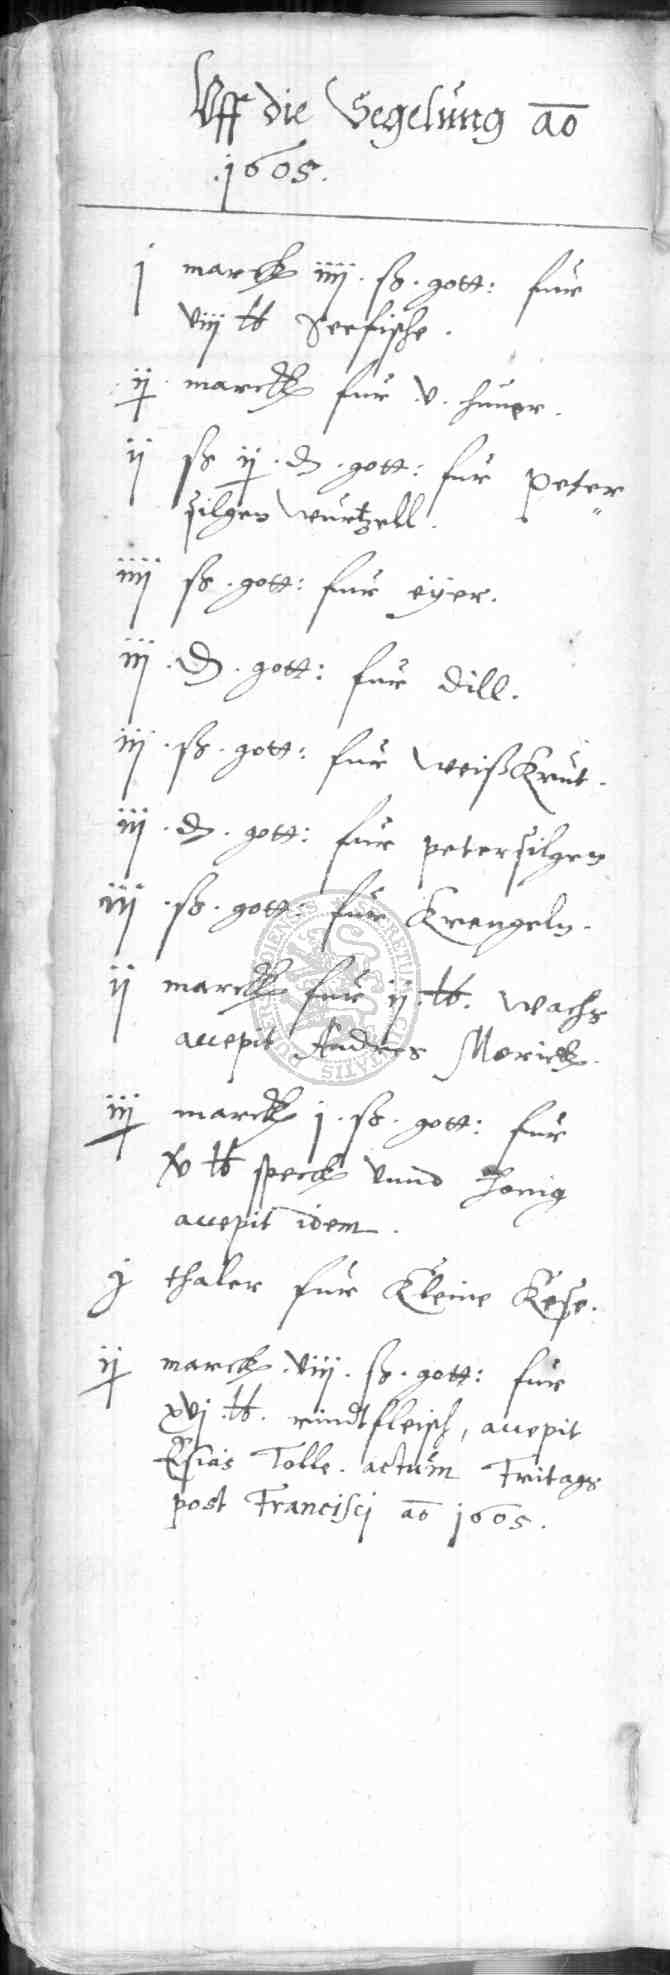 Uff die Segelung ao
.1605.
j marck iiij. ß. gott: fur
viij ℔ Seefische.
ij. marck fur .v. huner.
ij ß ij. ₰. gott: fur Peter
silgen wurtzell.
iiij ß. gott: fur eyer.
iij. ₰. gott: fur Dill.
iij. ß. gott: fur weißkrut.
iij. ₰. gott: fur petersilgen
iij. ß. gott: fur Krengeln.
ij marck fur ij. ℔. wachs
accepit Andres Morick.
iij marck j. ß. gott: fur
xv ℔ speck unnd honig
accepit idem.
j thaler fur Kleine Kese.
ij marck. viij. ß. gott: fur
xvj. ℔. rindtfleisch, accepit
Esias Tolle. actum Fritags
post Francisci ao 1605.